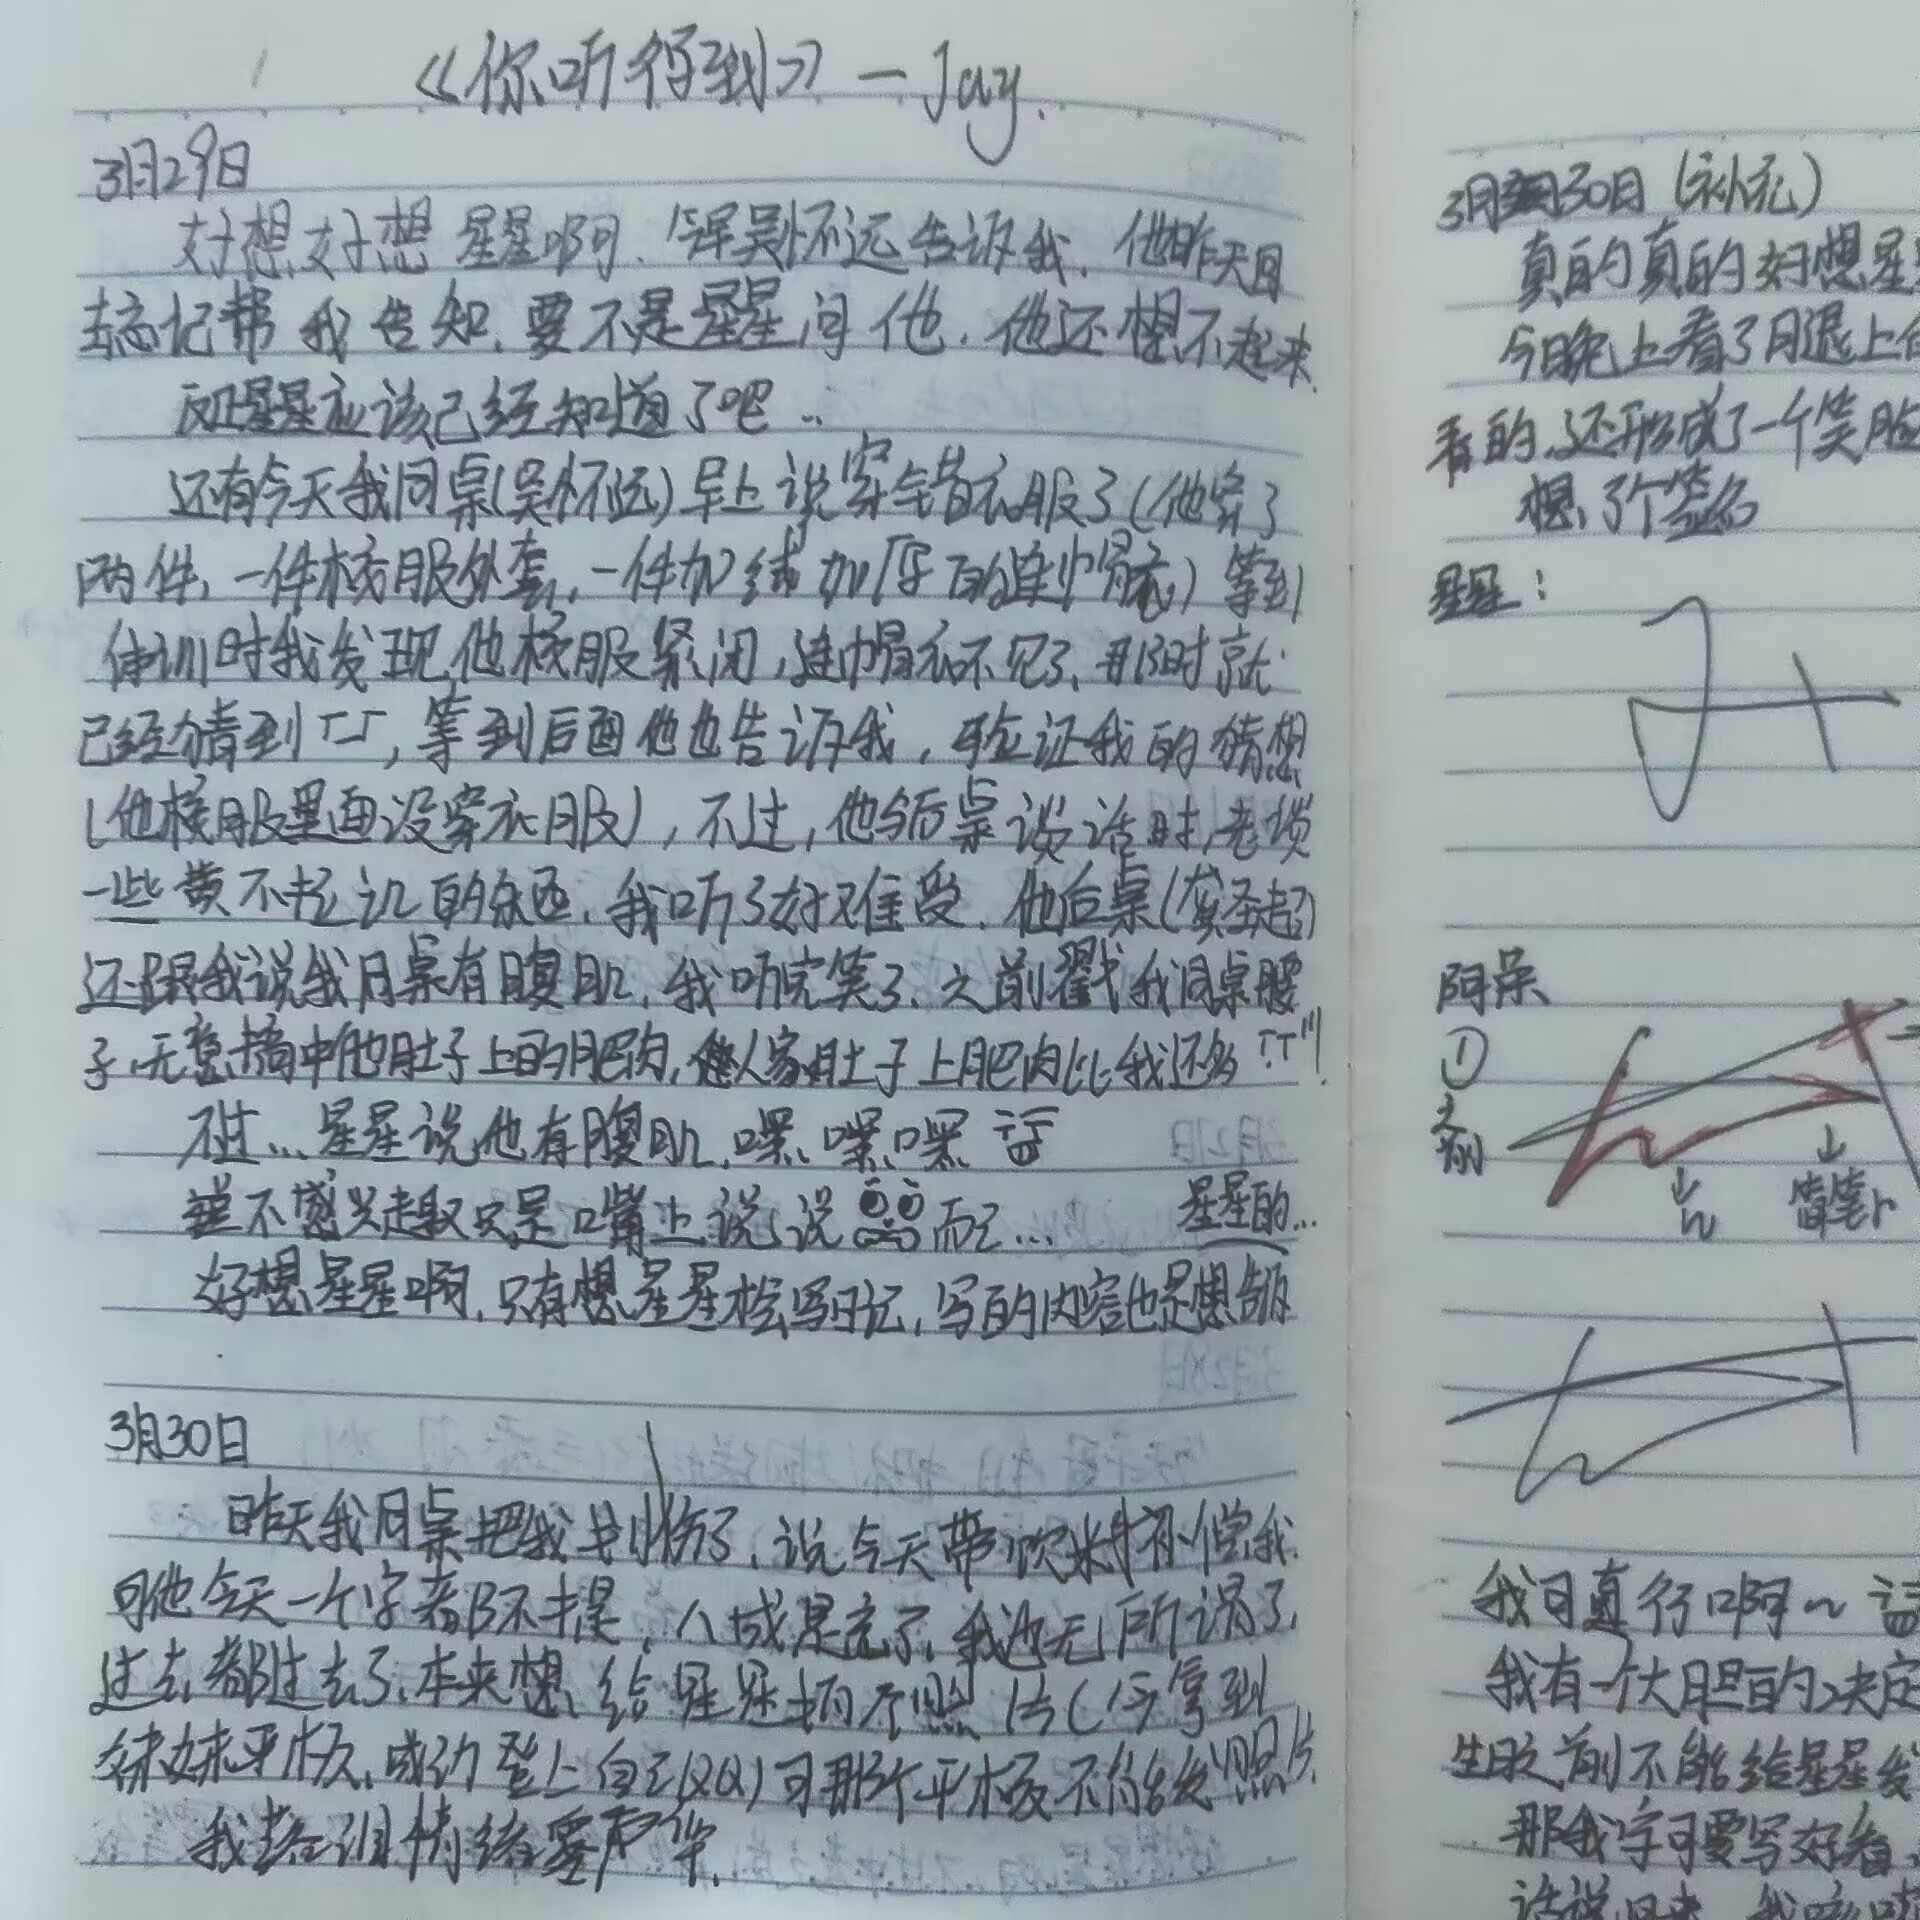 《你听得到》—Jay.
3月29日
好想好想星星啊.今早吴怀远告诉我.他昨天回
去忘记帮我告知.要不是星星问他.他还想不起来.
反正星星应该已经知道了吧..
还有今天我同桌(吴怀远)早上说穿错衣服了(他穿了
两件,一件校服外套,一件加绒加厚的连帽衣)等到
体训时我发现他校服紧闭,连帽衣不见了,那时就
已经猜到了,等到后面他也告诉我,验证我的猜想
(他校服里面没穿衣服),不过,他与后桌谈话时,老谈
一些黄不拉叽的东西.我听了好难受.他后桌(龚圣超)
还跟我说我同桌有腹肌,我听完笑了.之前戳我同桌腰
子,无意中他肚子上的肥肉,人家肚子上肥肉比我还多
不过...星星说他有腹肌.嘿嘿嘿
并不感兴趣只是嘴上说说而已...
星星的...
好想星星啊,只有想星星才会写日记,写的内容也是想
3月30日
昨天我同桌把我划伤了,说今天带饮料补偿我.
可他今天一个字都不提,八成是忘了,我也无所谓了.
过去都过去了,本来想给星星拍个照片(今拿到
妹妹平板,成功登上自己QQ)可那个平板不能发照片.
我情绪
3月30日(补充)
真的真的好想星
今日晚上看了
看的,还形成了一个笑脸
想了个签名
星星:
阿呆
①
之前
↓
↓
我可真行啊~
我有一个大胆的决定
生日之前不能给星星发
那我字可要写好看
话说回来,我